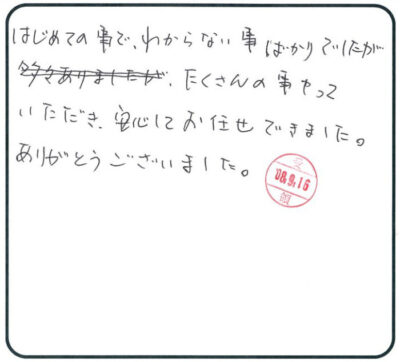 はじめての事で、わからない事ばかりでしたが
多々ありましたが、たくさんの事やって
いただき、安心してお任せできました。
ありがとうございました。
受
08.9.16
領